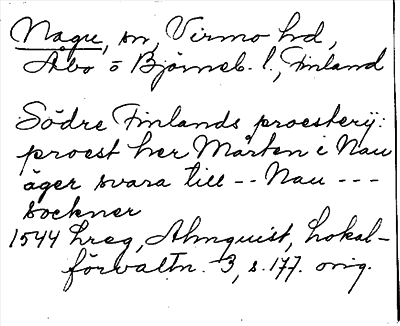 Nagu, sn, Virmo hd,
Åbo o Björneb. l., Finland
Södre Finlands proesterij:
proest her Mårten i Nau
äger svara till -- Nau ---
sockner
1544 hreg, Almquist, Lokal-
förvaltn. 3, s. 177. orig.